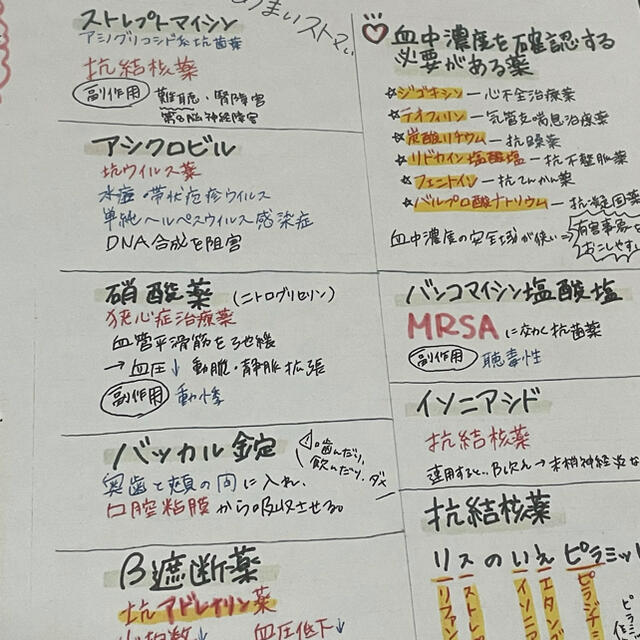 ストレプトマイシン
アミノグリコシド系抗菌薬
抗結核薬
副作用 難聴・腎障害
第8脳神経障害
ストマイ
アシクロビル
抗ウイルス薬
水痘・帯状疱疹ウイルス
単純ヘルペスウイルス感染症
DNA合成を阻害
硝酸薬(ニトログリセリン)
狭心症治療薬
血管平滑筋を弛緩
→血圧↓ 動脈・静脈拡張
副作用 動悸
バッカル錠
噛んだり、
飲んだり、ダメ
奥歯と頬の間に入れ、
口腔粘膜から吸収させる
β遮断薬
抗アドレナリン薬
心拍数↓ 血圧低下↓
♡血中濃度を確認する
必要がある薬
☆ジゴキシン—心不全治療薬
☆テオフィリン—気管支喘息治療薬
☆炭酸リチウム—抗躁薬
☆リドカイン塩酸塩—抗不整脈薬
☆フェニトイン—抗てんかん薬
☆バルプロ酸ナトリウム—抗凝固薬
血中濃度の安全域が狭い⇒有害事象を
おこしやすい
バンコマイシン塩酸塩
MRSAに効く抗菌薬
副作用 聴毒性
イソニアシド
抗結核薬
連用すると…B6欠乏→末梢神経炎な
抗結核薬
リスのいえピラミッ
リファン
ストレ
イソニ
エタン
ピラジナ
ピラミ